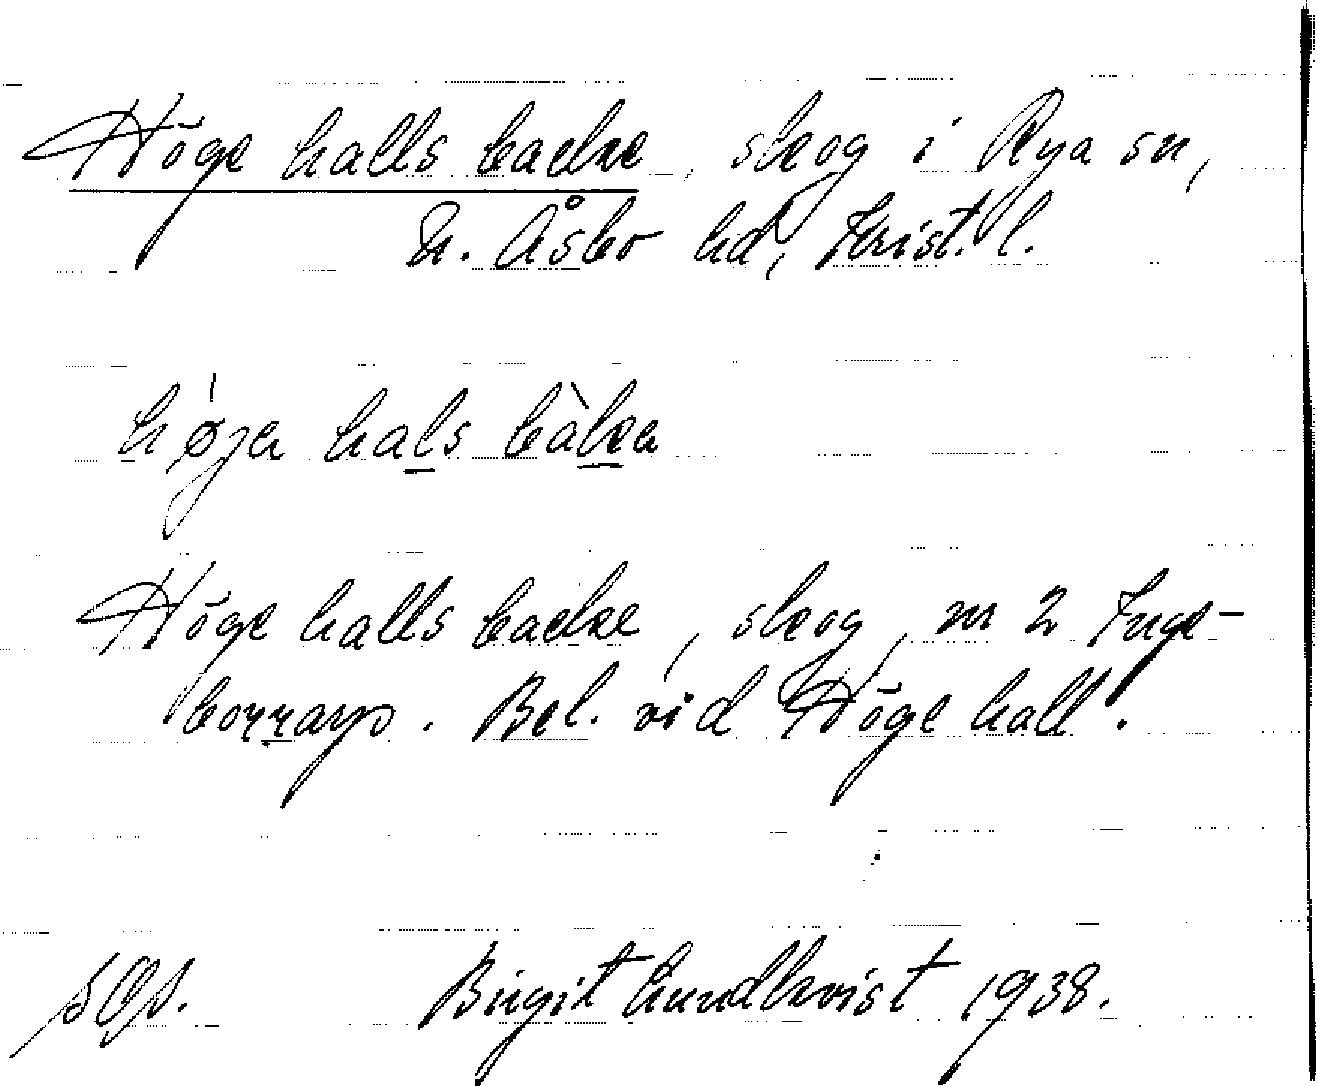 Höge halls backe, skog i Rya sn,
N. Åsbo hd, Krist. l.
høja hals bàka
Höge halls backe, skog, nr 2 Inge-
borrarp. Bel. vid Höge hall.
sgs.
Birgit Lundkvist 1938.